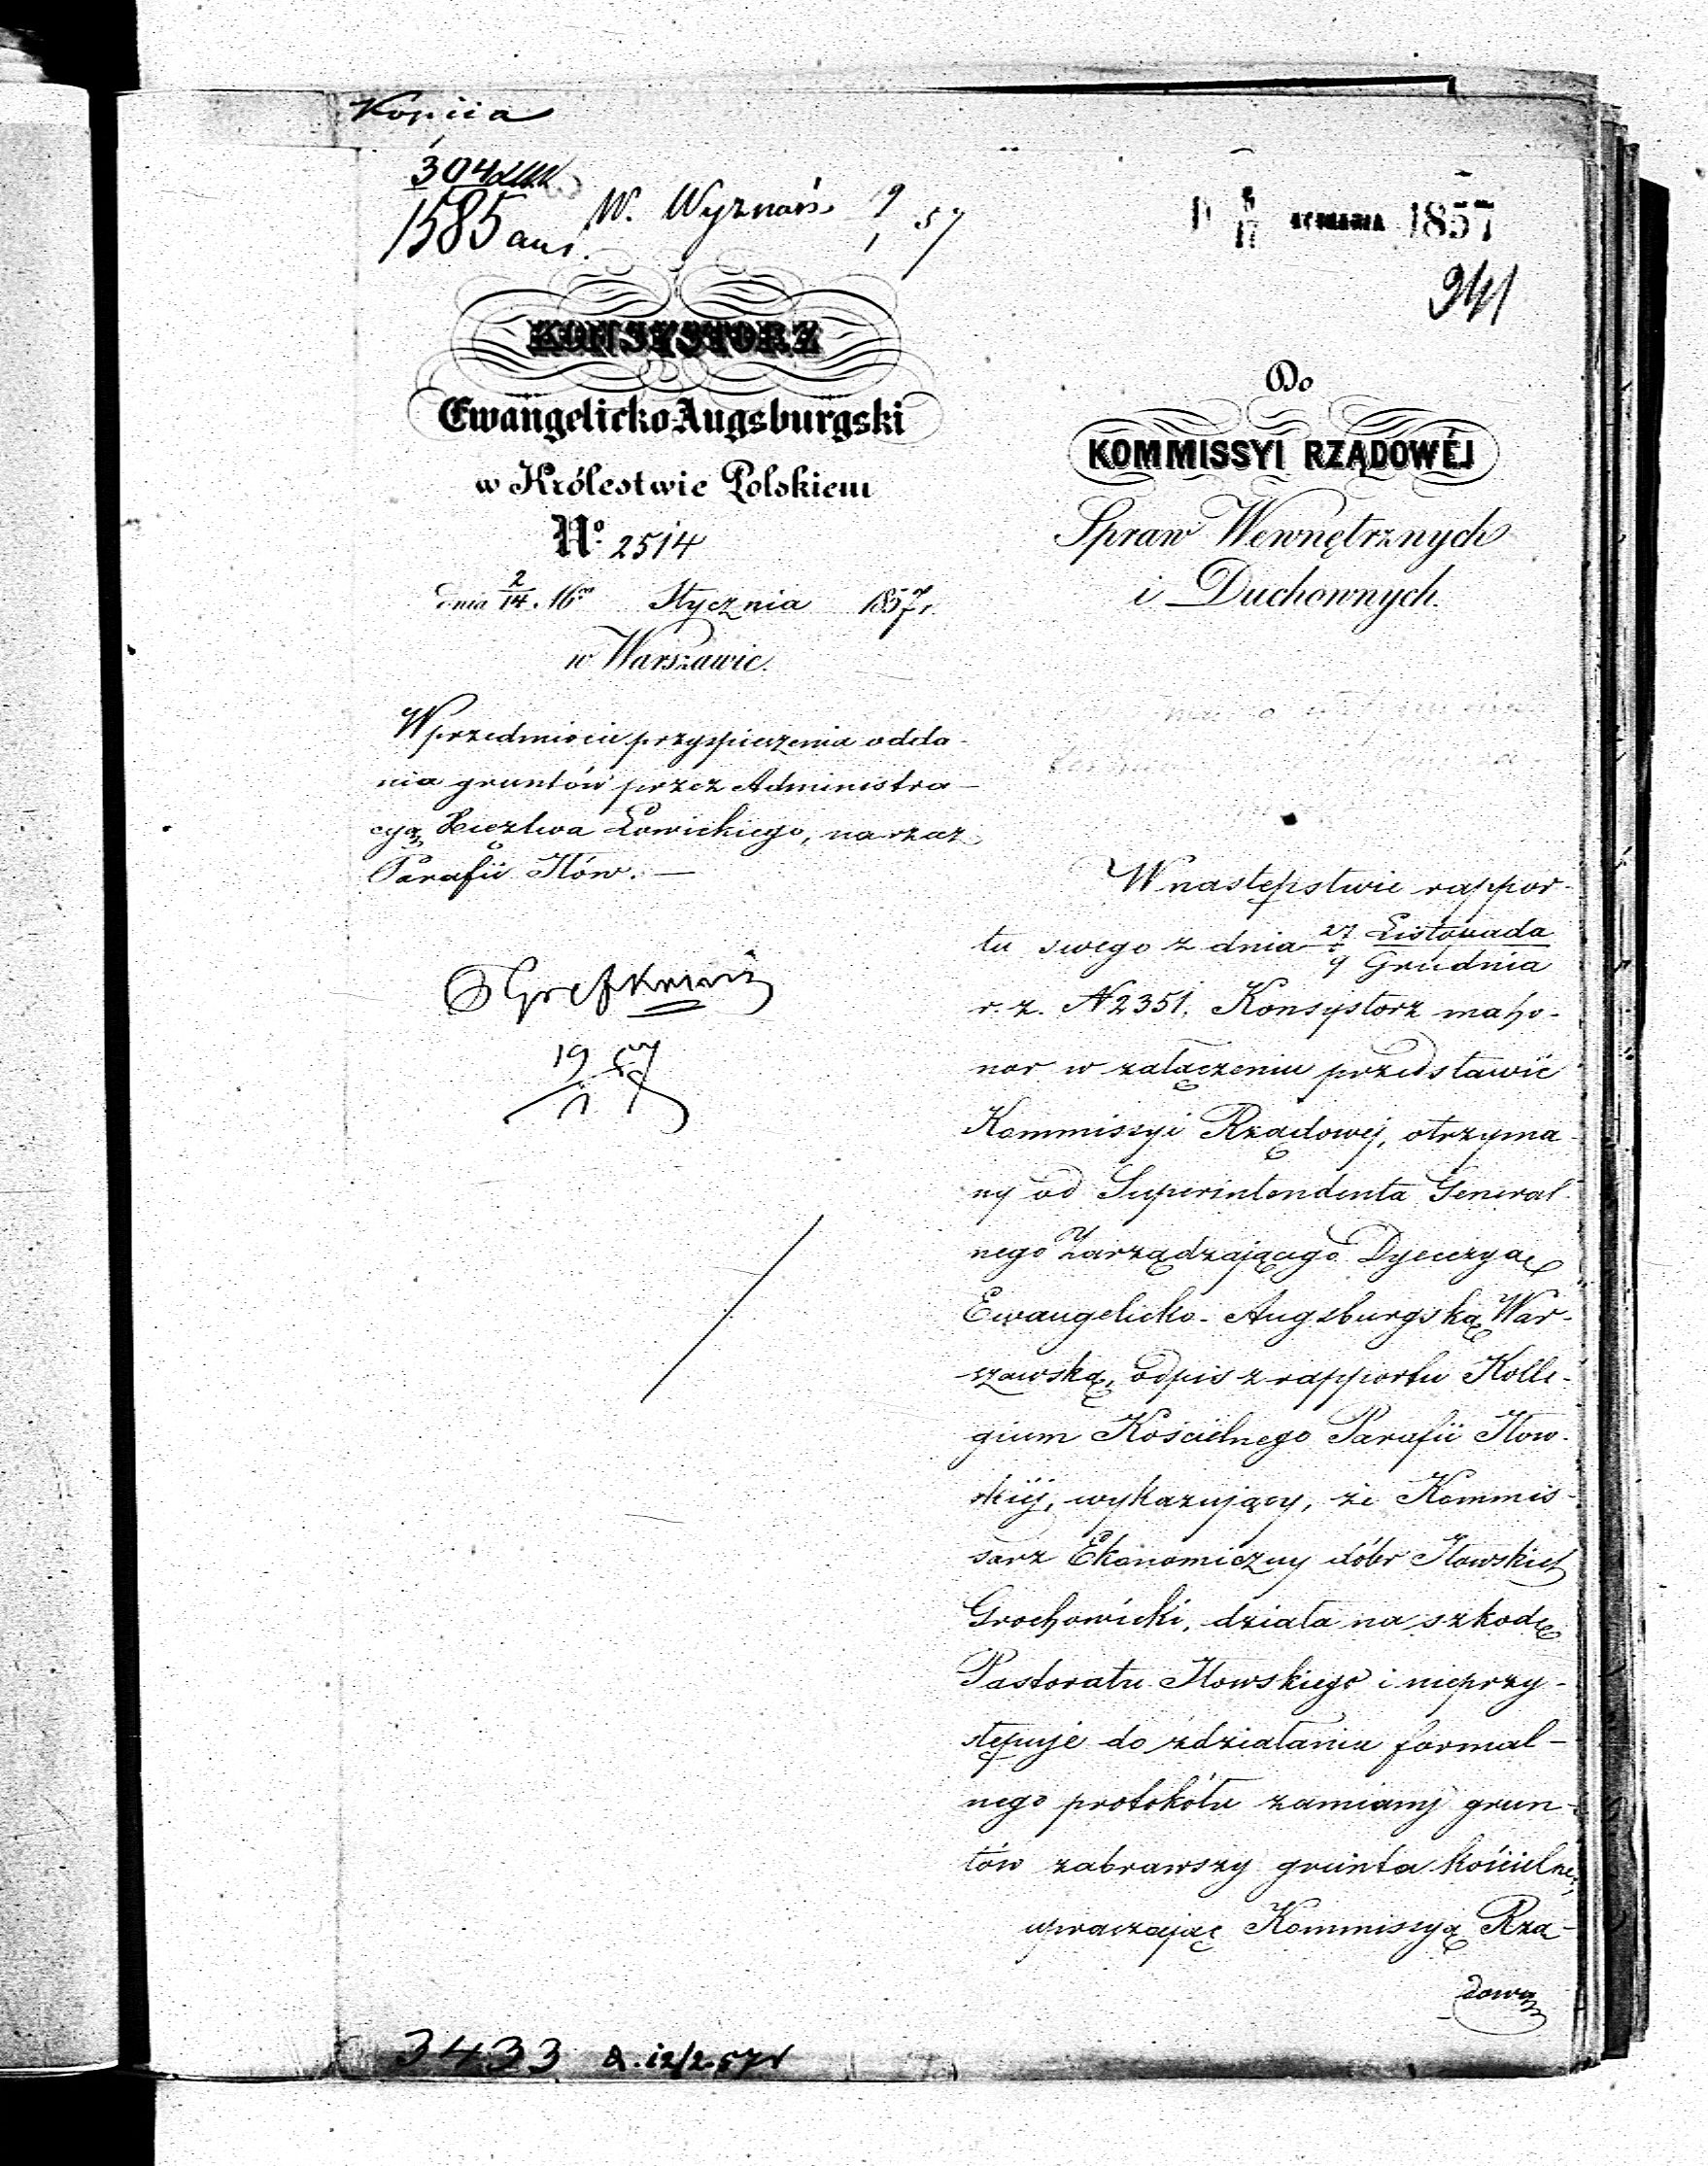 Kopiia
304
1585 aus.
W. Wyznań 9/1 57
1857
941
KONSYSTORZ
Ewangelicko-Augsburgski
w Królestwie Polskiem
No. 2514
dnia 2/14. 16 Stycznia 1857 r.
w Warszawie.
W przedmiocie przyspieszenia odda-
nia gruntów przez Administra-
cyą Xieztwa Łowickiego, na rzecz
Parafii Iłów. —
19 57
Do
KOMMISSYI RZĄDOWÉJ
Spraw Wewnętrznych
i Duchownych.
W następstwie rappor-
tu swego z dnia 27 Listopada / 9 Grudnia
r. z. N 2351. Konsystorz ma ho-
nor w załączeniu przedstawić
Kommissyi Rządowej, otrzyma-
ny od Superintendenta General-
nego Zarządzającego Dyecezyą
Ewangelicko-Augsburgską War-
szawską, odpis z rapportu Kolle-
gium Kościelnego Parafii Iłow-
skiej, wykazujący, że Kommis-
sarz Ekonomiczny dóbr Iłowskich
Grochowicki, działa na szkodę
Pastoratu Iłowskiego i nieprzy-
stępuje do zdziałania formal-
nego protokółu zamiany grun-
tów zabrawszy grunta kościelne,
upraszając Kommissyą Rzą-
dową
3433 12/2.57 r